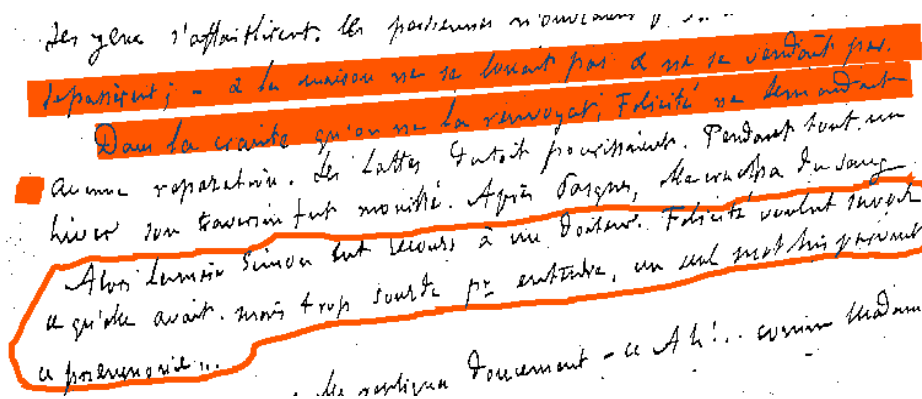 Ses yeux s'affaiblirent. les persiennes n'ouvraient p
se passèrent ; - & la maison ne se louait pas & ne se vendait pas.
Dans la crainte qu'on ne la renvoyât, Félicité ne demandait
aucune réparation. Les Lattes du toit pourrissaient. Pendant tout un
hiver son traversin fut mouillé. Après Pasques, elle cracha du sang.
Alors la mère Simon eut recours à un Docteur. Félicité voulut savoir
ce qu'elle avait. mais trop sourde pr entendre, un seul mot lui parvint
"pneumonie...
elle répliqua doucement - "Ah!.. comme Madame